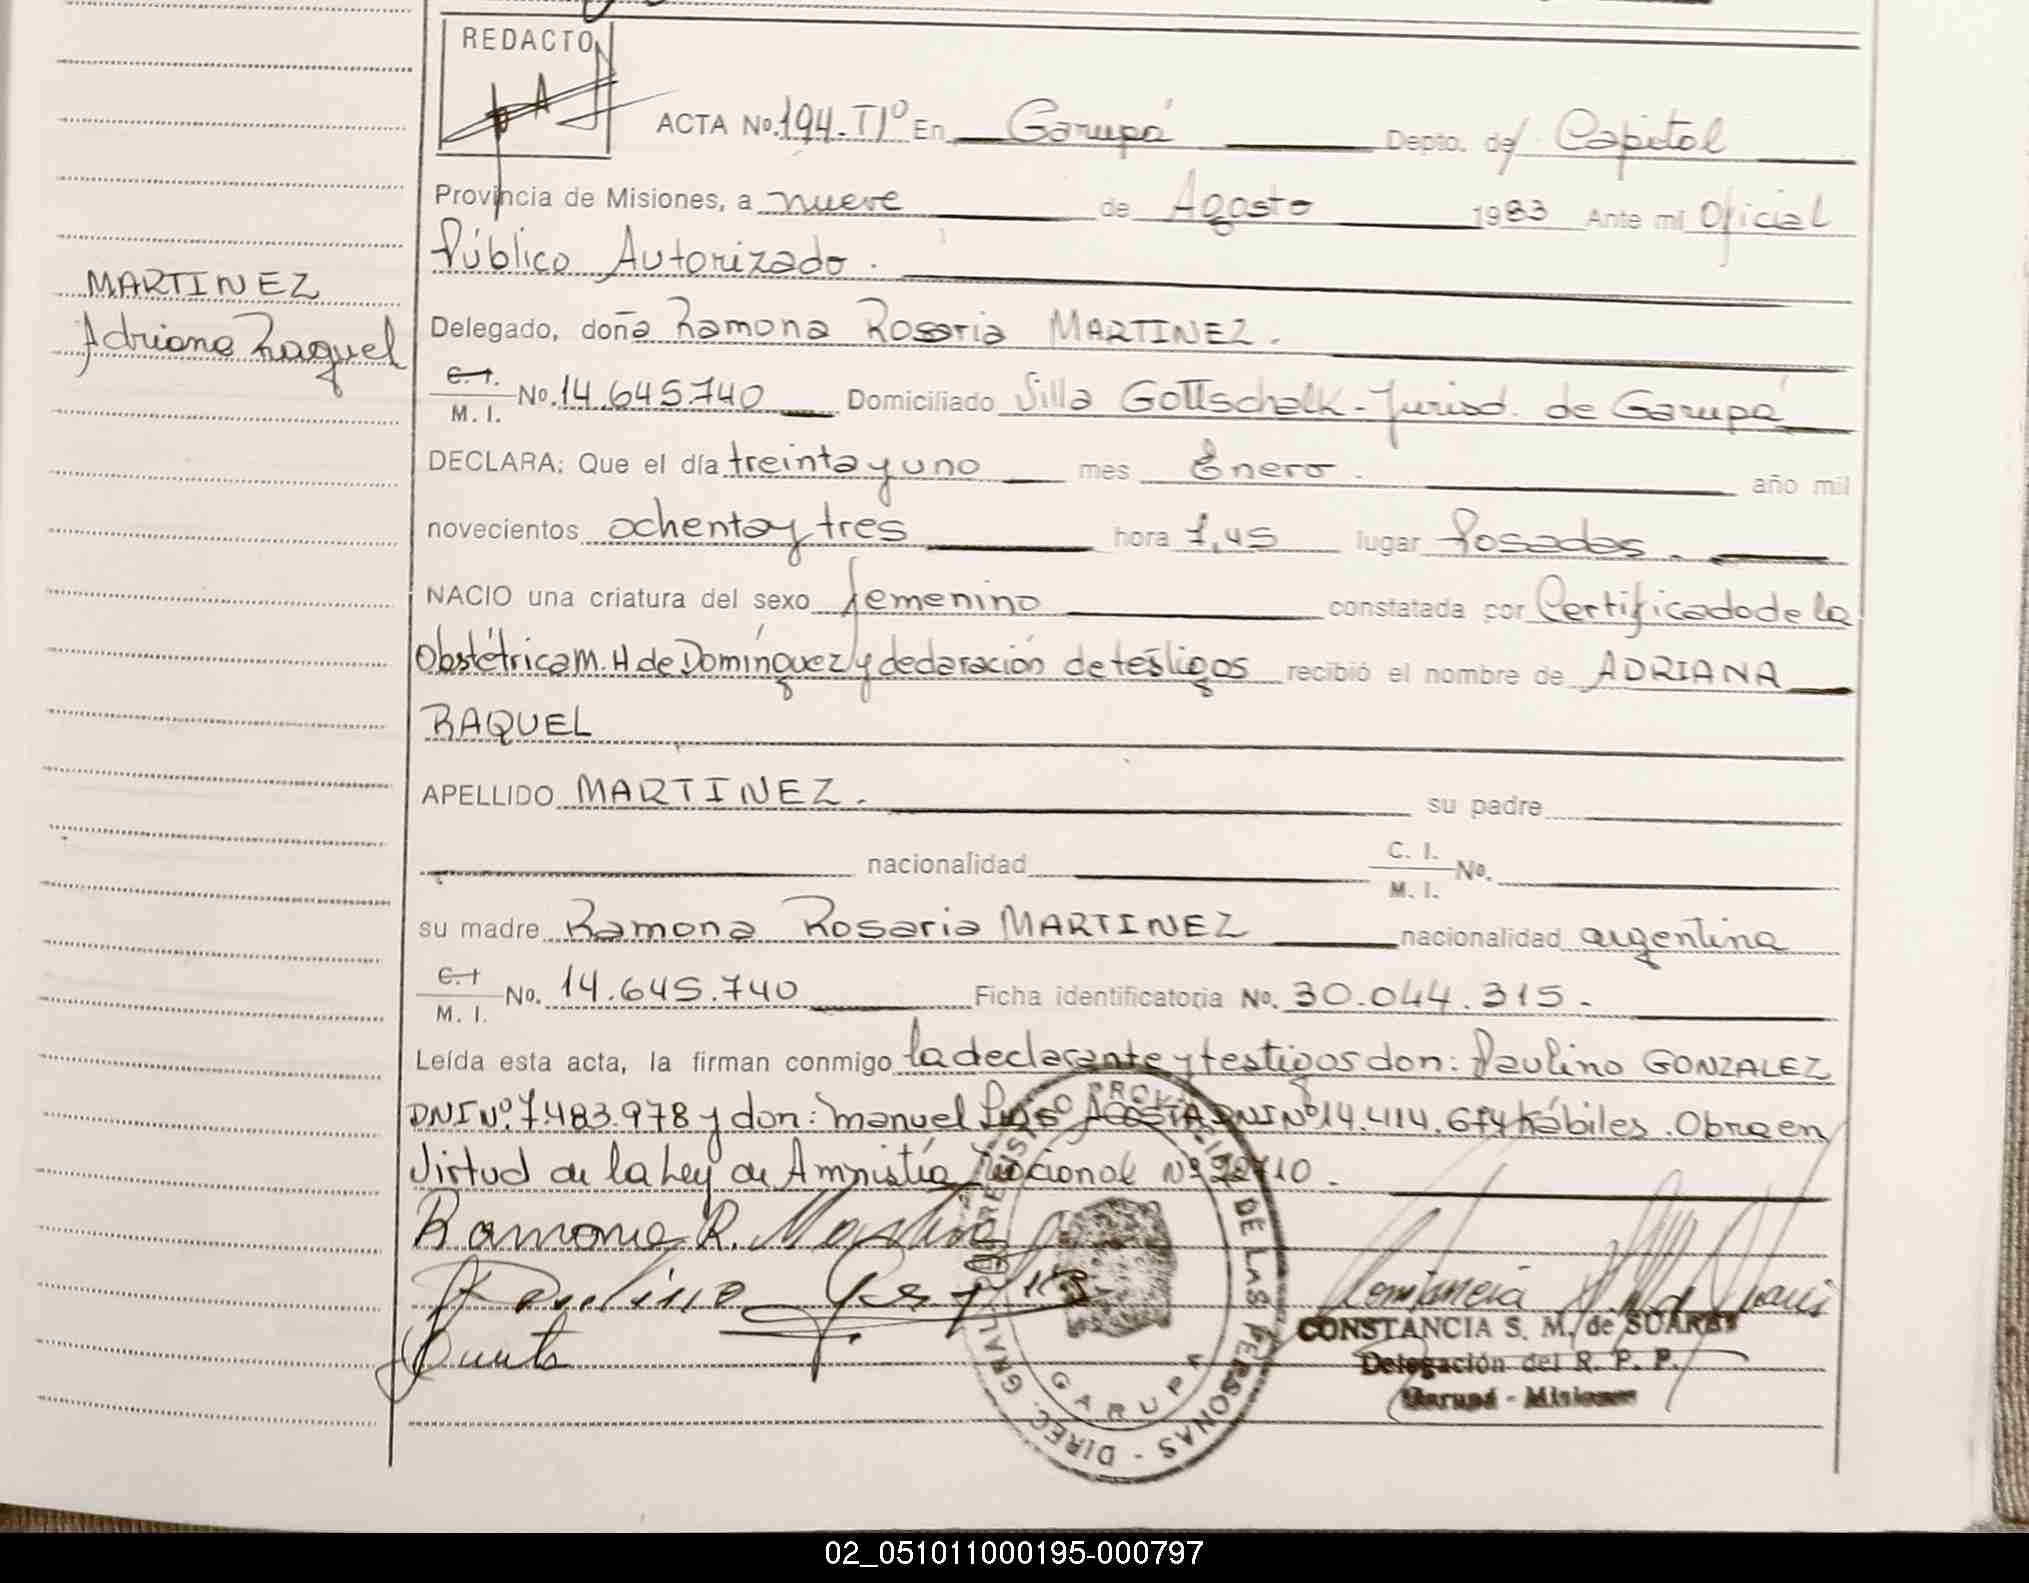 REDACTO
ACTA No. 194. TIº En Garupá Depto. de Capital
Provincia de Misiones, a nueve de Agosto 1983 Ante mi Oficial
Público Autorizado.
MARTINEZ
Adriana Raquel
Delegado, doña Ramona Rosaria MARTINEZ.
C. I.
M. I. No. 14.645.740 Domiciliado Villa Gottschalk - Jurisd. de Garupá
DECLARA: Que el día treinta y uno mes Enero. año mil
novecientos ochenta y tres hora 1,45 lugar Posadas.
NACIO una criatura del sexo femenino constatada por Certificado de la
Obstétrica M. H de Domínguez y declaración de testigos recibió el nombre de ADRIANA
RAQUEL
APELLIDO MARTINEZ. su padre
nacionalidad C. I. M. I. No.
su madre Ramona Rosaria MARTINEZ nacionalidad argentina
C. I
M. I. No. 14.645.740 Ficha identificatoria No. 30.044.315.
Leída esta acta, la firman conmigo la declarante y testigos don: Paulino GONZALEZ
DNI Nº. 7.483.978 y don: Manuel ACOSTA DNI Nº 14.414.674 hábiles. Obra en
Virtud de la Ley de Amnistía Nacional Nº 22710.
Ramona R. Martinez
Paulino
CONSTANCIA S. M. de SUAREZ
Delegación del R. P. P.
Garupá - Misiones
DIREC. GRAL. REGISTRO PROVINCIAL DE LAS PERSONAS
GARUPA
02_051011000195-000797